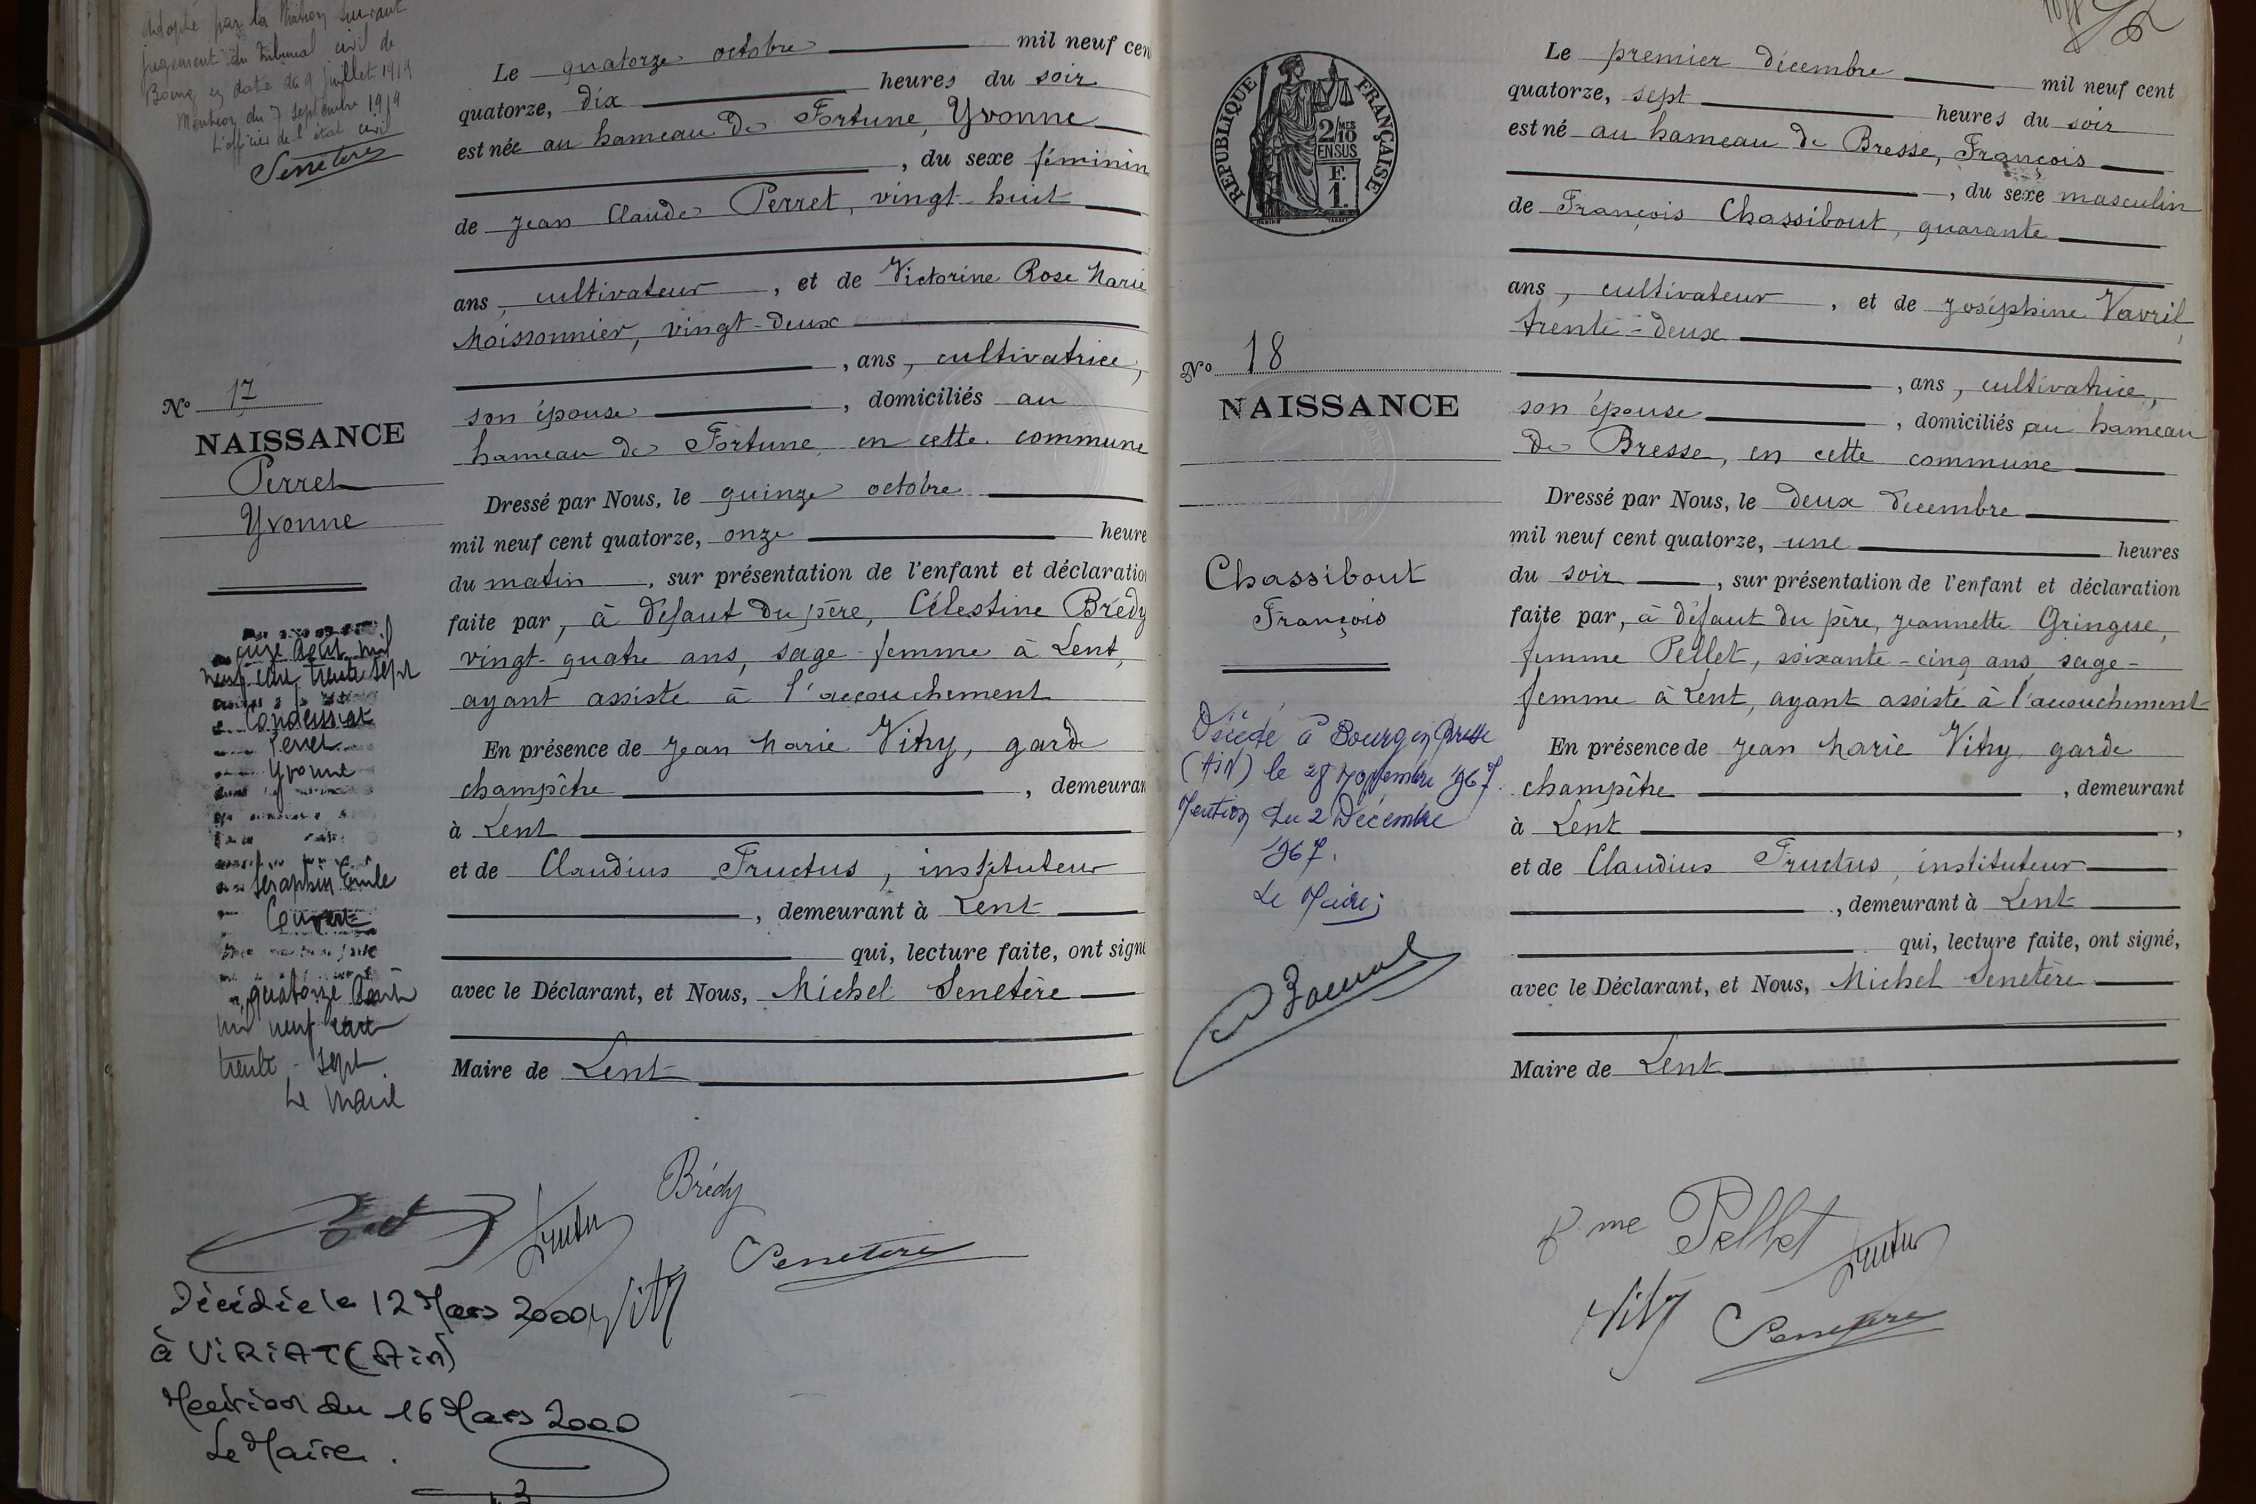 adopté par la Nation suivant
jugement du tribunal civil de
Bourg en date du 9 juillet 1919
Mention du 7 septembre 1919
L'officier de l'état civil
Senetère
Le quatorze octobre mil neuf cen
quatorze, dix heures du soir
est née au hameau de Fortune, Yvonne
, du sexe féminin
de Jean Claude Perret, vingt-huit
ans, cultivateur, et de Victorine Rose Marie
Moissonnier, vingt-deux
, ans, cultivatrice,
son épouse, domiciliés au
hameau de Fortune, en cette commune
Dressé par Nous, le quinze octobre
mil neuf cent quatorze, onze heure
du matin, sur présentation de l'enfant et déclaratio
faite par, à défaut du père, Célestine Brédy
vingt-quatre ans, sage-femme à Lent,
ayant assisté à l'accouchement
En présence de Jean Marie Vitry, garde
champêtre, demeuran
à Lent
et de Claudius Fructus, instituteur
, demeurant à Lent
qui, lecture faite, ont signé
avec le Déclarant, et Nous, Michel Senetère
Maire de Lent
No 17
NAISSANCE
Perret
Yvonne
onze Août mil
neuf cent trente sept
Condeissiat
Perret
Yvonne
Séraphin Emile
quatorze Août
mil neuf cent
trente-sept
Le Maire
Brédy
Fructus
Senetère
Vitry
Décédée le 12 Mars 2000
à VIRIAT (Ain)
Mention du 16 Mars 2000
Le Maire.
RÉPUBLIQUE FRANÇAISE
2/10 MES
EN SUS
F.
1.
No 18
NAISSANCE
Chassibout
François
Décédé à Bourg en Bresse
(Ain) le 28 novembre 1967.
Mention du 2 Décembre
1967.
Le Maire;
Le premier décembre mil neuf cent
quatorze, sept heures du soir
est né au hameau de Bresse, François
, du sexe masculin
de François Chassibout, quarante
ans, cultivateur, et de Joséphine Vavril,
trente-deux
, ans, cultivatrice,
son épouse, domiciliés au hameau
de Bresse, en cette commune
Dressé par Nous, le deux décembre
mil neuf cent quatorze, une heures
du soir, sur présentation de l'enfant et déclaration
faite par, à défaut du père, Jeannette Gringue,
femme Pellet, soixante-cinq ans, sage-
femme à Lent, ayant assisté à l'accouchement
En présence de Jean Marie Vitry, garde
champêtre, demeurant
à Lent,
et de Claudius Fructus, instituteur
, demeurant à Lent
qui, lecture faite, ont signé,
avec le Déclarant, et Nous, Michel Senetère
Maire de Lent
fme Pellet
Fructus
Vitry
Senetère